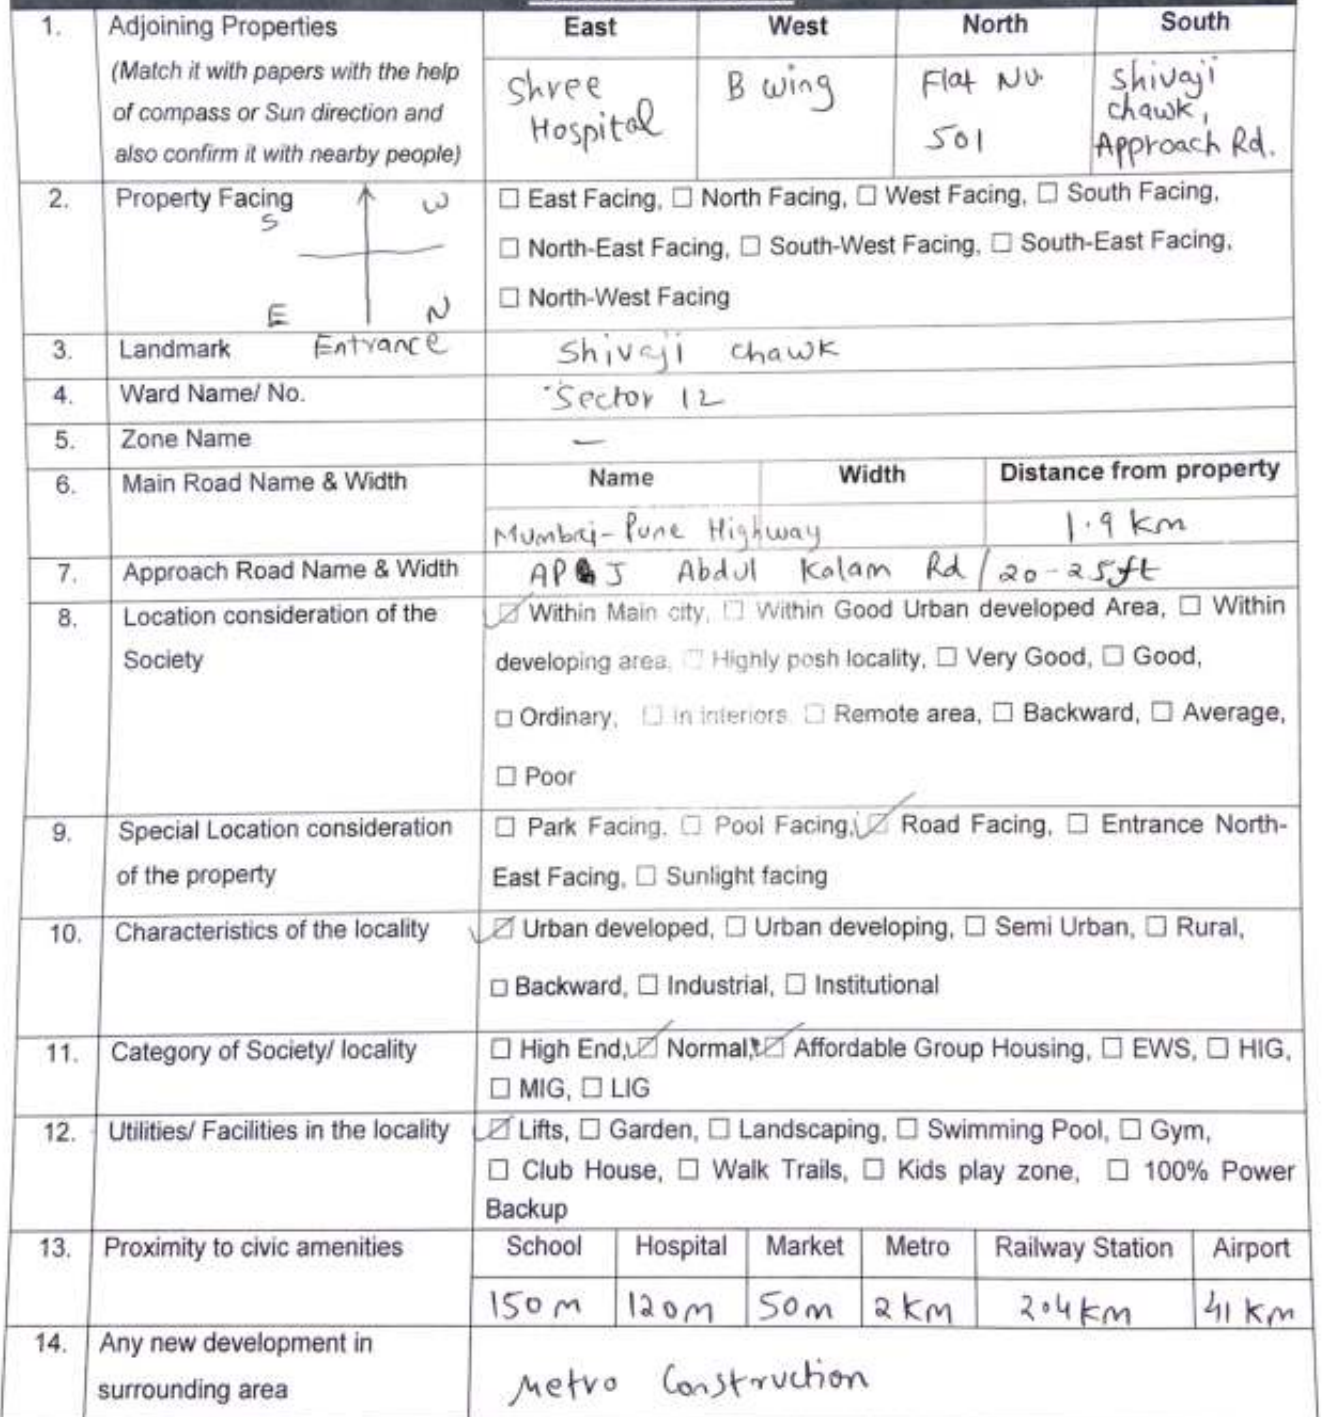 1. Adjoining Properties East West North South
(Match it with papers with the help
of compass or Sun direction and
also confirm it with nearby people)
Shree
Hospital
B wing
Flat No.
501
Shivaji
chawk,
Approach Rd.
2. Property Facing
S W
E N
Entrance
☐ East Facing, ☐ North Facing, ☐ West Facing, ☐ South Facing,
☐ North-East Facing, ☐ South-West Facing, ☐ South-East Facing,
☐ North-West Facing
3. Landmark Shivaji chawk
4. Ward Name/ No. Sector 12
5. Zone Name —
6. Main Road Name & Width Name Width Distance from property
Mumbai-Pune Highway 1.9 km
7. Approach Road Name & Width APJ Abdul Kalam Rd / 20-25ft
8. Location consideration of the
Society
☑ Within Main city, ☐ Within Good Urban developed Area, ☐ Within
developing area, ☐ Highly posh locality, ☐ Very Good, ☐ Good,
☐ Ordinary, ☐ In interiors ☐ Remote area, ☐ Backward, ☐ Average,
☐ Poor
9. Special Location consideration
of the property
☐ Park Facing, ☐ Pool Facing, ☑ Road Facing, ☐ Entrance North-
East Facing, ☐ Sunlight facing
10. Characteristics of the locality
☑ Urban developed, ☐ Urban developing, ☐ Semi Urban, ☐ Rural,
☐ Backward, ☐ Industrial, ☐ Institutional
11. Category of Society/ locality
☐ High End, ☑ Normal, ☑ Affordable Group Housing, ☐ EWS, ☐ HIG,
☐ MIG, ☐ LIG
12. Utilities/ Facilities in the locality
☑ Lifts, ☐ Garden, ☐ Landscaping, ☐ Swimming Pool, ☐ Gym,
☐ Club House, ☐ Walk Trails, ☐ Kids play zone, ☐ 100% Power
Backup
13. Proximity to civic amenities School Hospital Market Metro Railway Station Airport
150 m 120 m 50 m 2 km 2.4 km 41 km
14. Any new development in
surrounding area
Metro Construction